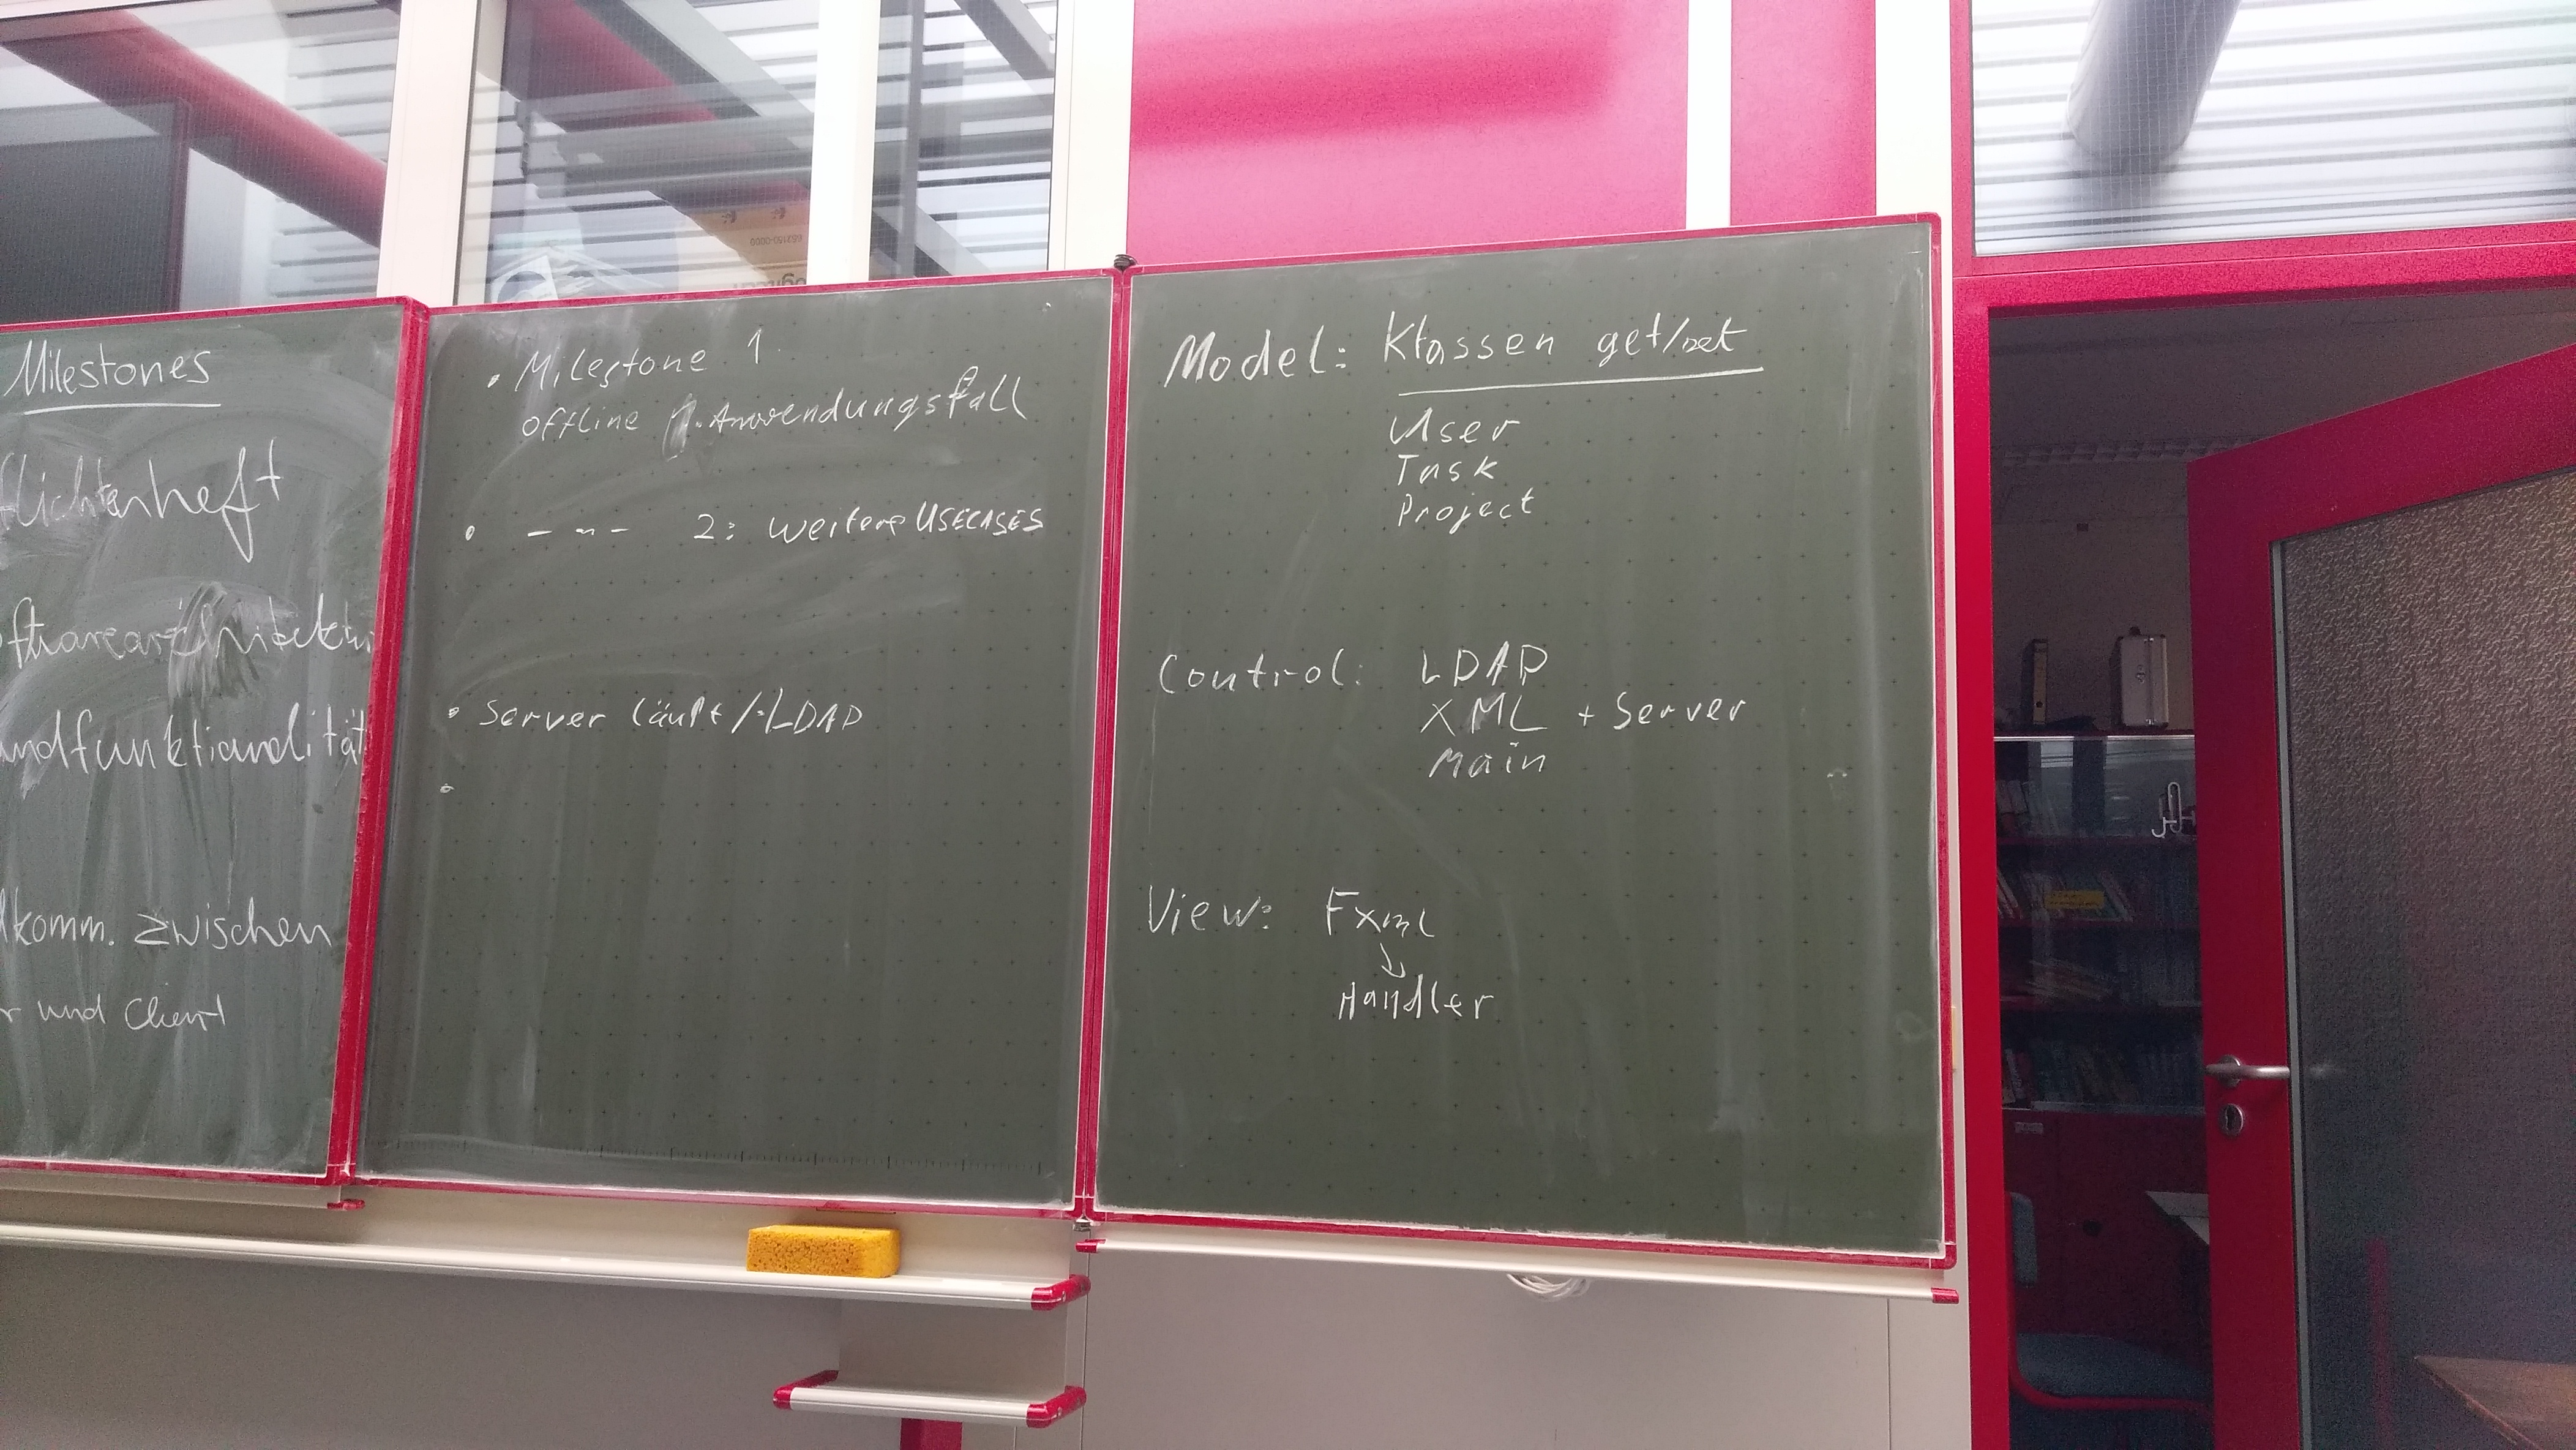 Milestones
flichtenheft
oftwarearchitektu
undfunktionalität
komm. zwischen
r und Client
• Milestone 1
offline 1. Anwendungsfall
• - " - 2: weitere USECASES
• Server läuft / LDAP
•
Model: Klassen get/set
User
Task
Project
Control: LDAP
XML + Server
Main
View: Fxml
↓
Handler
653150-0000